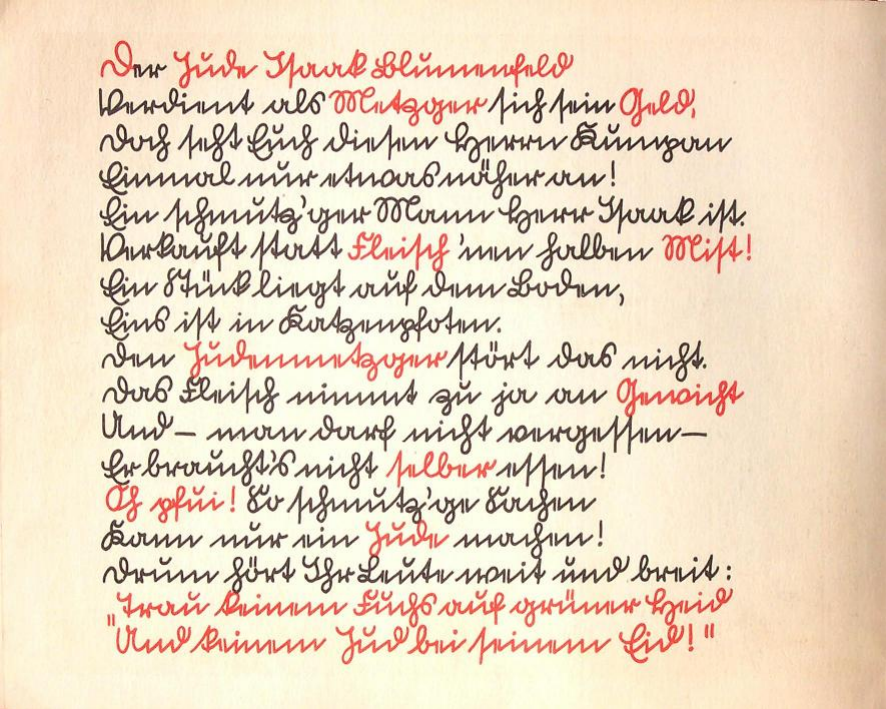 Der Jude Isaak Blumenfeld
Verdient als Metzger sich sein Geld,
Doch seht Euch diesen Herrn Kumpan
Einmal nur etwas näher an!
Ein schmutz'ger Mann Herr Isaak ist.
Verkauft statt Fleisch 'nen halben Mist!
Ein Stück liegt auf dem Boden,
Eins ist in Katzenpfoten.
Den Judenmetzger stört das nicht.
Das Fleisch nimmt zu ja an Gewicht
Und – man darf nicht vergessen –
Er braucht's nicht selber essen!
Oh pfui! So schmutz'ge Sachen
Kann nur ein Jude machen!
Drum hört Ihr Leute weit und breit:
"Trau keinem Fuchs auf grüner Heid
"Und keinem Jud bei seinem Eid!"